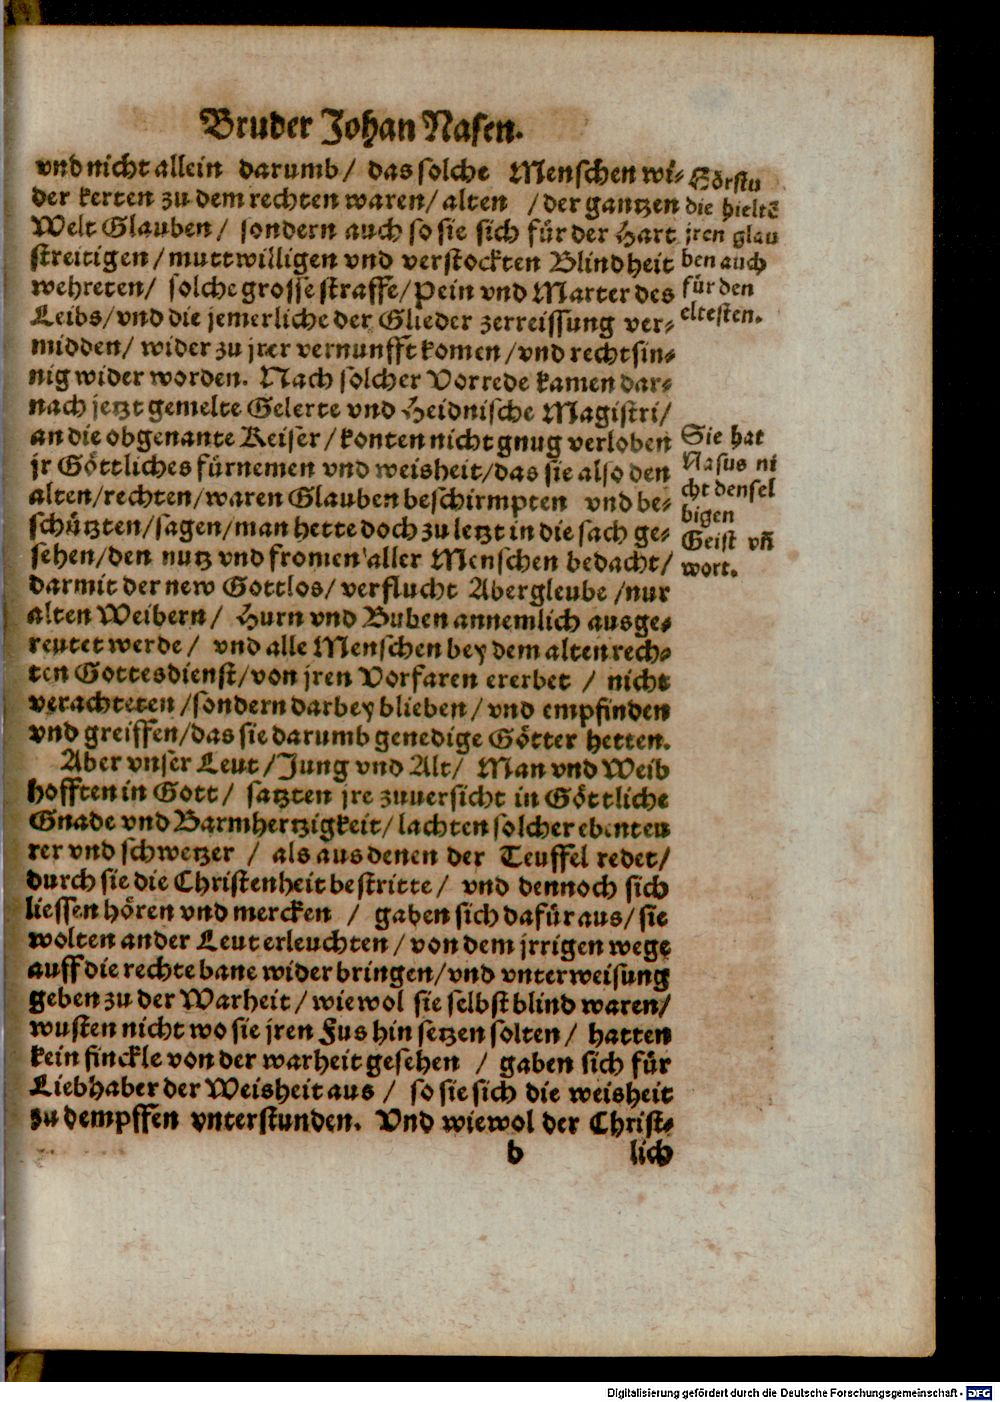 Bruder Johan Nasen.
vnd nicht allein darumb / das solche Menschen wi-
der kerten zu dem rechten waren / alten / der gantzen
Welt Glauben / sondern auch so sie sich für der Hart
streitigen / muttwilligen vnd verstockten Blindheit
wehreten / solche grosse straffe / Pein vnd Marter des
Leibs / vnd die jemerliche der Glieder zerreissung ver-
midden / wider zu jrer vernunfft komen / vnd rechtsin-
nig wider worden. Nach solcher Vorrede kamen dar-
nach jetzt gemelte Gelerte vnd Heidnische Magistri /
an die obgenante Keiser / konten nicht gnug verloben
jr Göttliches fürnemen vnd weisheit / das sie also den
alten / rechten / waren Glauben beschirmpten vnd be-
schützten / sagen / man hette doch zu letzt in die sach ge-
sehen / den nutz vnd fromen aller Menschen bedacht /
darmit der new Gottlos / verflucht Abergleube / nur
alten Weibern / Hurn vnd Buben annemlich ausge-
reutet werde / vnd alle Menschen bey dem alten rech-
ten Gottesdienst / von jren Vorfaren ererbet / nicht
verachteten / sondern darbey blieben / vnd empfinden
vnd greiffen / das sie darumb genedige Götter hetten.
Aber vnser Leut / Jung vnd Alt / Man vnd Weib
hofften in Gott / satzten jre zuuersicht in Göttliche
Gnade vnd Barmhertzigkeit / lachten solcher ebenteu
rer vnd schwetzer / als aus denen der Teuffel redet /
durch sie die Christenheit bestritte / vnd dennoch sich
liessen hören vnd mercken / gaben sich dafür aus / sie
wolten ander Leut erleuchten / von dem jrrigen wege
auff die rechte bane wider bringen / vnd vnterweisung
geben zu der Warheit / wiewol sie selbst blind waren /
wusten nicht wo sie jren Fus hin setzen solten / hatten
kein finckle von der warheit gesehen / gaben sich für
Liebhaber der Weisheit aus / so sie sich die weisheit
zu dempffen vnterstunden. Vnd wiewol der Christ-
b lich
Hörstu
die hieltē
jren glau
ben auch
für den
eltesten.
Sie hat
Nasus ni
cht densel
bigen
Geist vn̄
wort.
Digitalisierung gefördert durch die Deutsche Forschungsgemeinschaft - DFG